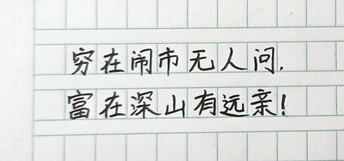 穷在闹市无人问.
富在深山有远亲!